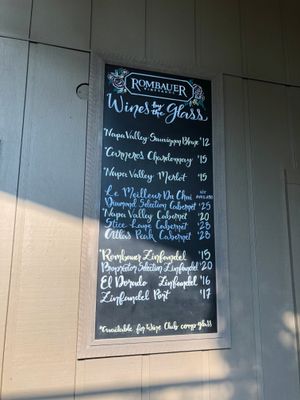 ROMBAUER
VINEYARDS
Wines by the Glass
Napa Valley Sauvignon Blanc $12
Carneros Chardonnay $15
Napa Valley Merlot $15
Le Meilleur Du Chai
Diamond Selection Cabernet $25
Napa Valley Cabernet $20
Stice Lane Cabernet $28
Atlas Peak Cabernet $28
Rombauer Zinfandel $15
Proprietor Selection Zinfandel $20
El Dorado Zinfandel $16
Zinfandel Port $17
*available for Wine Club comp glass